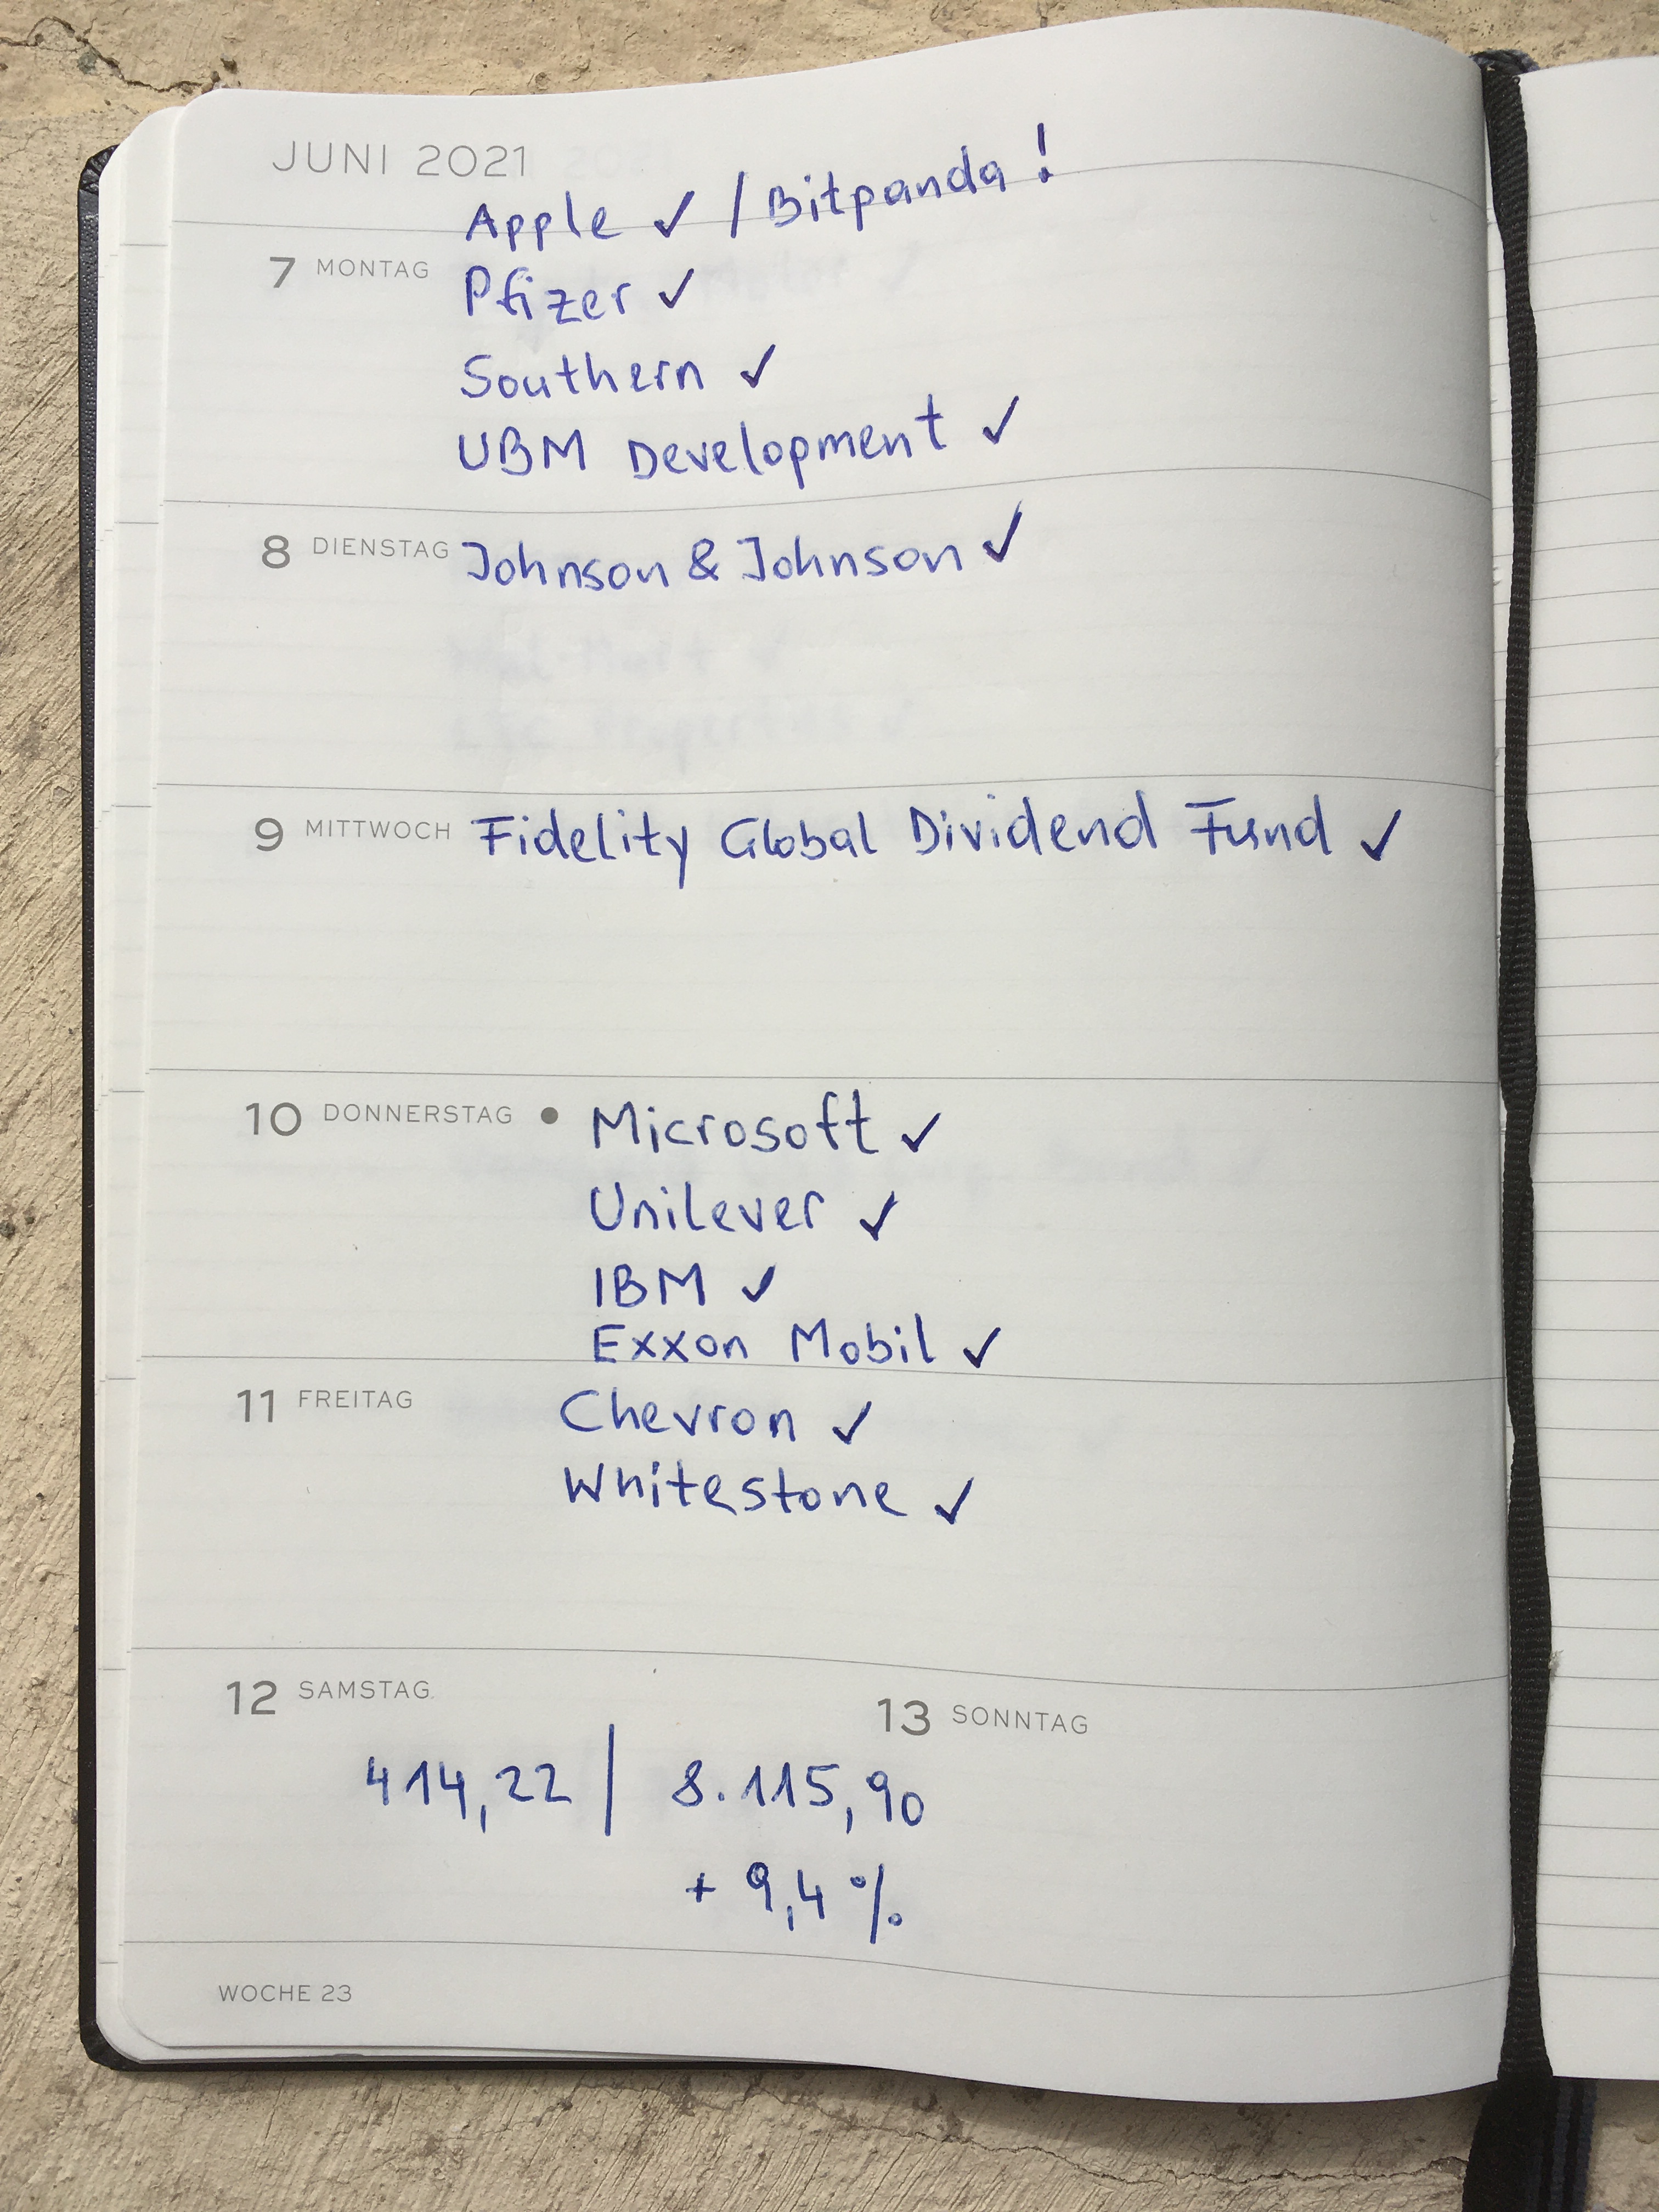 JUNI 2021
Apple ✓ / Bitpanda!
7 MONTAG
Pfizer ✓
Southern ✓
UBM Development ✓
8 DIENSTAG Johnson & Johnson ✓
9 MITTWOCH Fidelity Global Dividend Fund ✓
10 DONNERSTAG • Microsoft ✓
Unilever ✓
IBM ✓
Exxon Mobil ✓
11 FREITAG Chevron ✓
Whitestone ✓
12 SAMSTAG
13 SONNTAG
414,22 | 8.115,90
+ 9,4 %
WOCHE 23